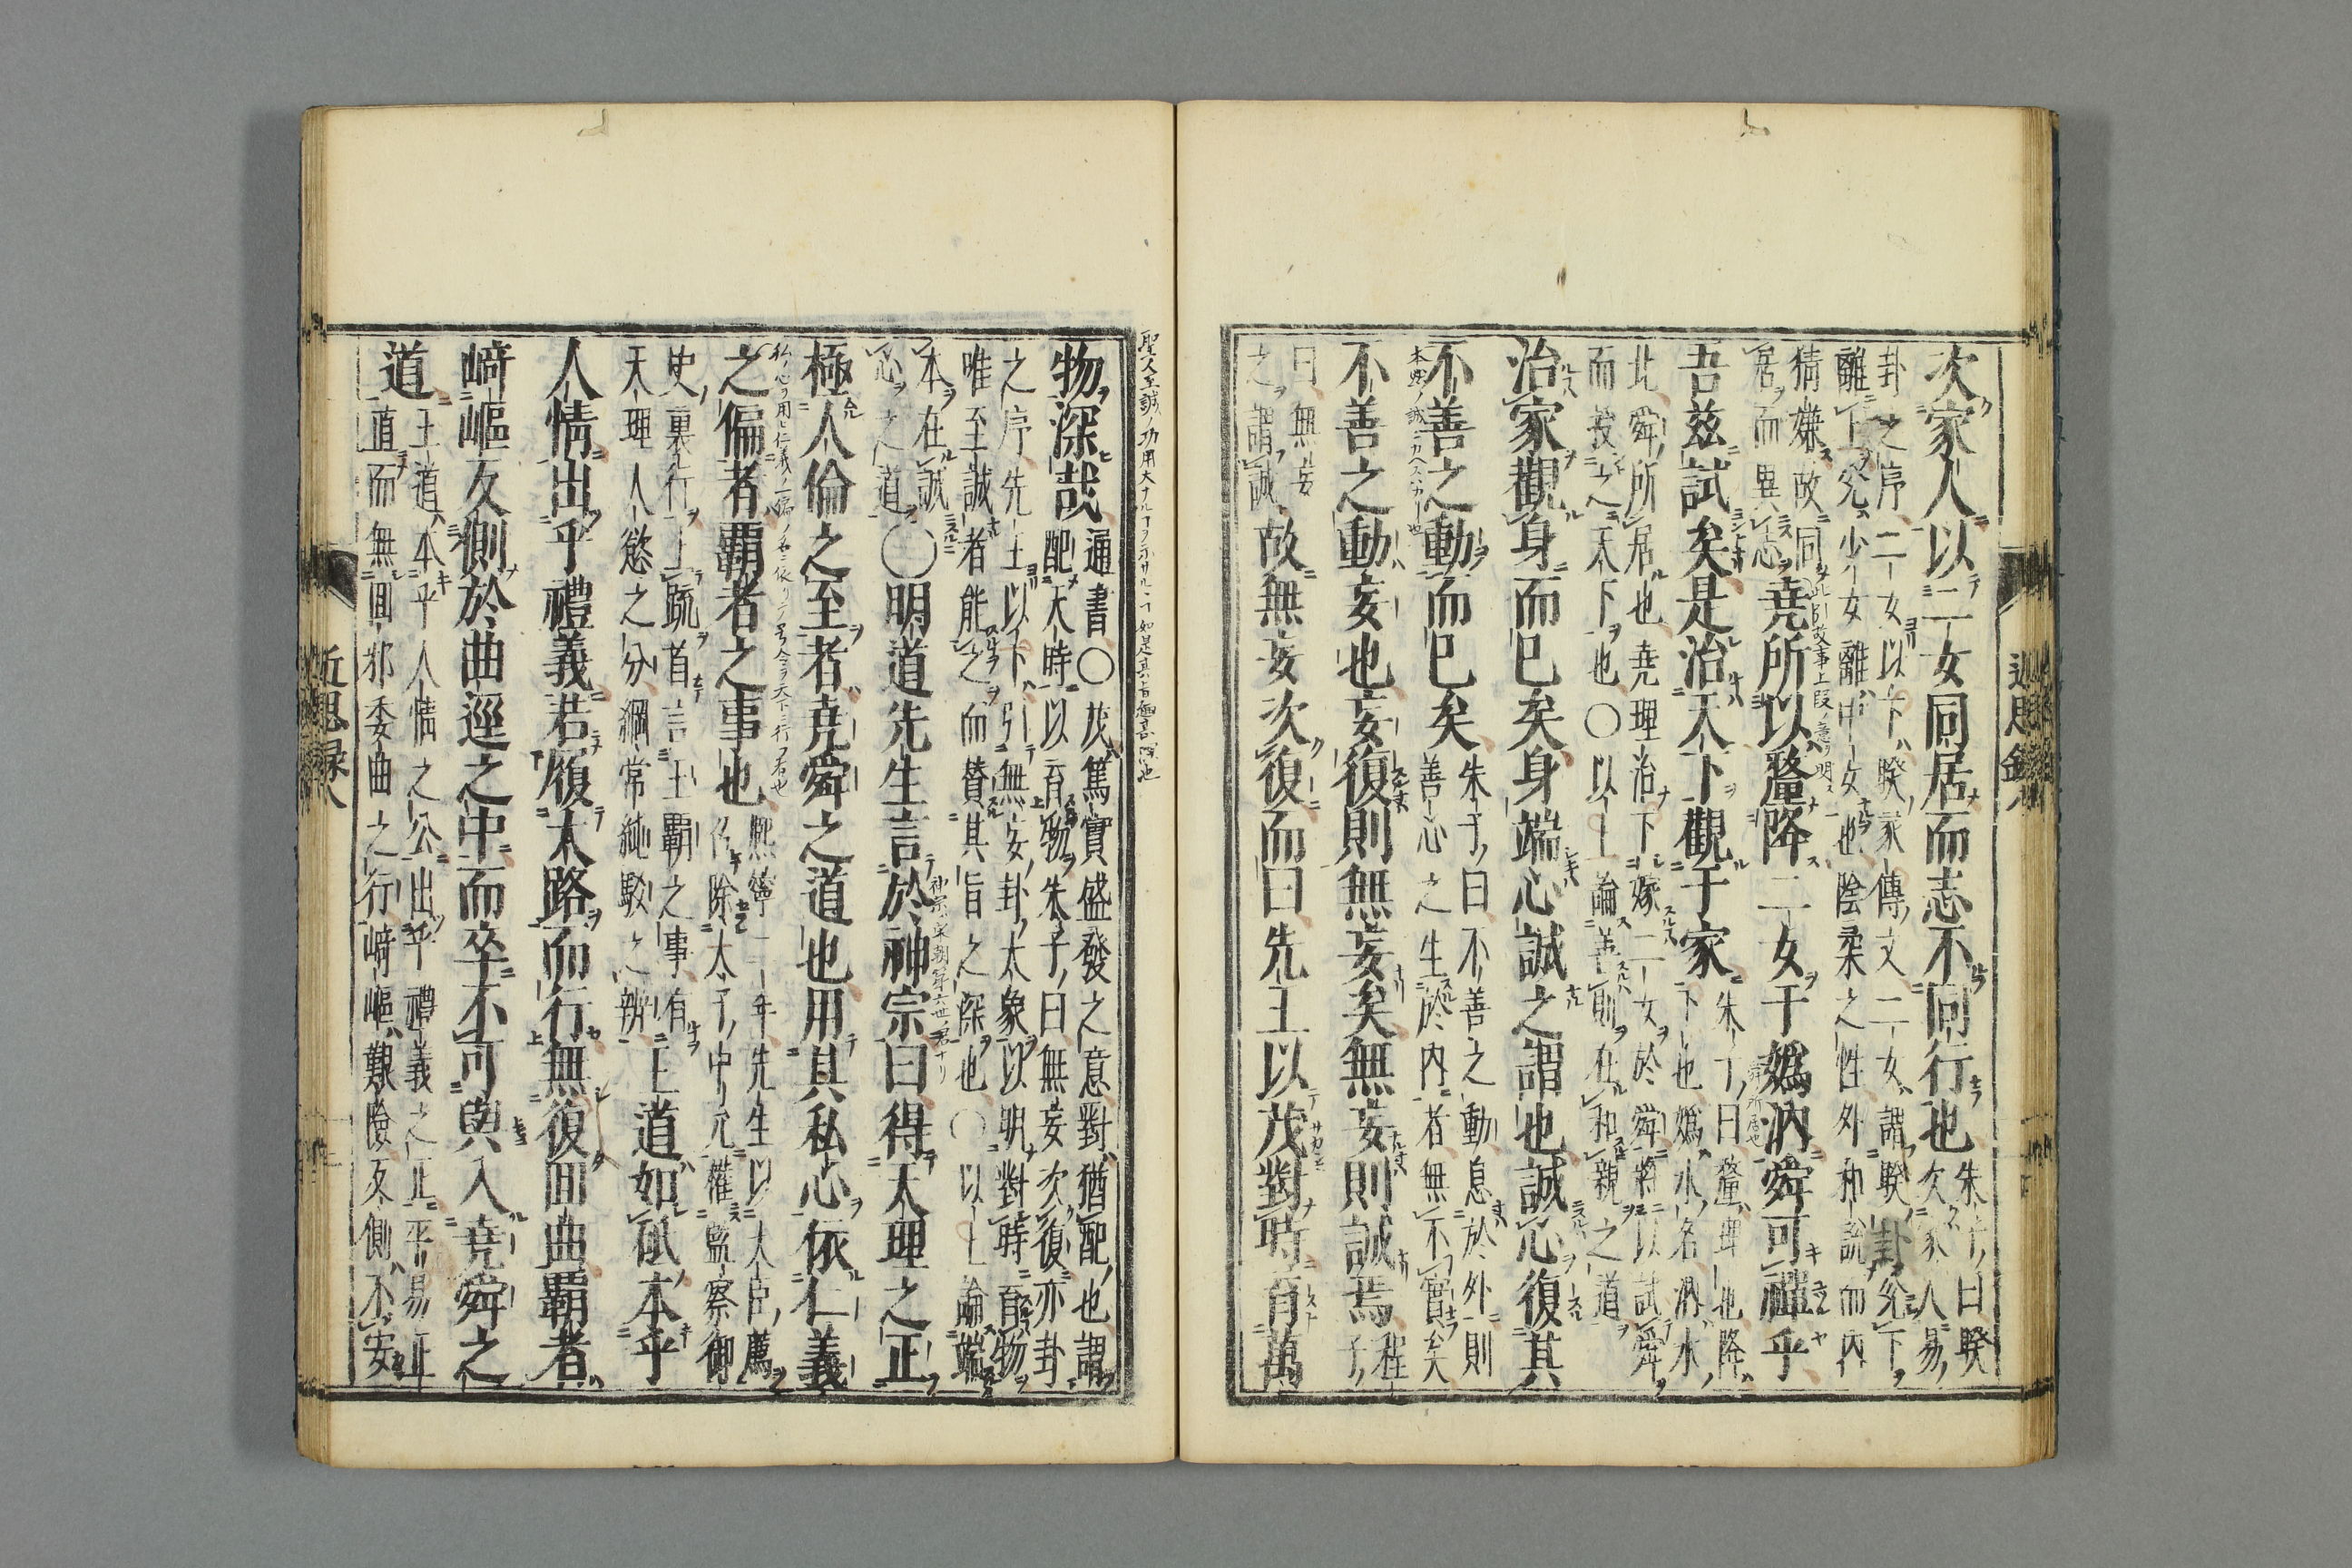 次家人以二女同居而志不同行也朱子曰睽次家人易
卦之序二女以下睽彖傳文二女謂睽卦兌下
離上兌少女離中女也陰柔之性外和說而內
猜嫌故同居而異志堯所以釐降二女于嬀汭舜可禪乎
吾茲試矣是治天下觀于家朱子曰釐理也降
下也嬀水名汭水
北舜所居也堯理治下嫁二女於舜將以試舜
而授之天下也○以上論善則在和親之道
治家觀身而已矣身端心誠之謂也誠心復其
不善之動而已矣朱子曰不善之動息於外則
善心之生於內者無不實矣
不善之動妄也妄復則無妄矣無妄則誠焉程子
曰無妄
之謂誠故無妄次復而曰先王以茂對時育萬
近思錄八
物深哉通書○茂篤實盛發之意對猶配也謂
配天時以育物朱子曰無妄次復亦卦
之序先王以下引無妄卦大象以明對時育物
唯至誠者能之而贊其旨之深也○以上論端
本在誠
心之道○明道先生言於神宗曰得天理之正
極人倫之至者堯舜之道也用其私心依仁義
之偏者覇者之事也熙寧二年先生以大臣薦
召除太子中允權監察御
史裏行上疏首言王覇之事有
天理人慾之分綱常純駁之辨王道如砥本乎
人情出乎禮義若履大路而行無復回曲覇者
﨑嶇反側於曲逕之中而卒不可與入堯舜之
道王道本乎人情之公出乎禮義之正平易正
直而無回邪委曲之行﨑嶇艱險反側不安
近思錄八